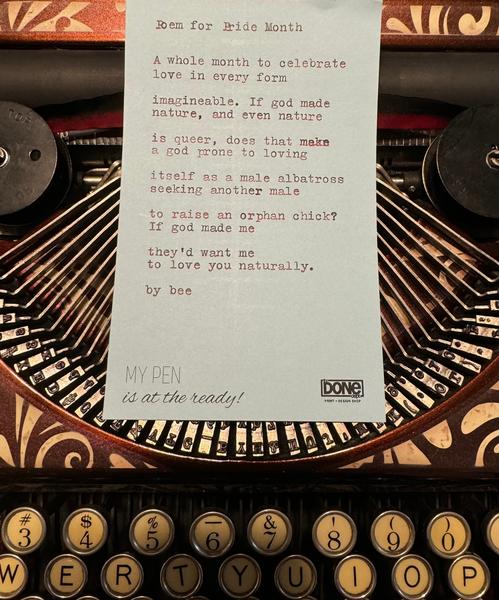 Poem for Pride Month
A whole month to celebrate
love in every form
imagineable. If god made
nature, and even nature
is queer, does that make
a god prone to loving
itself as a male albatross
seeking another male
to raise an orphan chick?
If god made me
they'd want me
to love you naturally.
by bee
MY PEN
is at the ready!
DONE
PRINT + DESIGN SHOP
# $ % — & ' ( )
3 4 5 6 7 8 9 0
W E R T Y U I O P